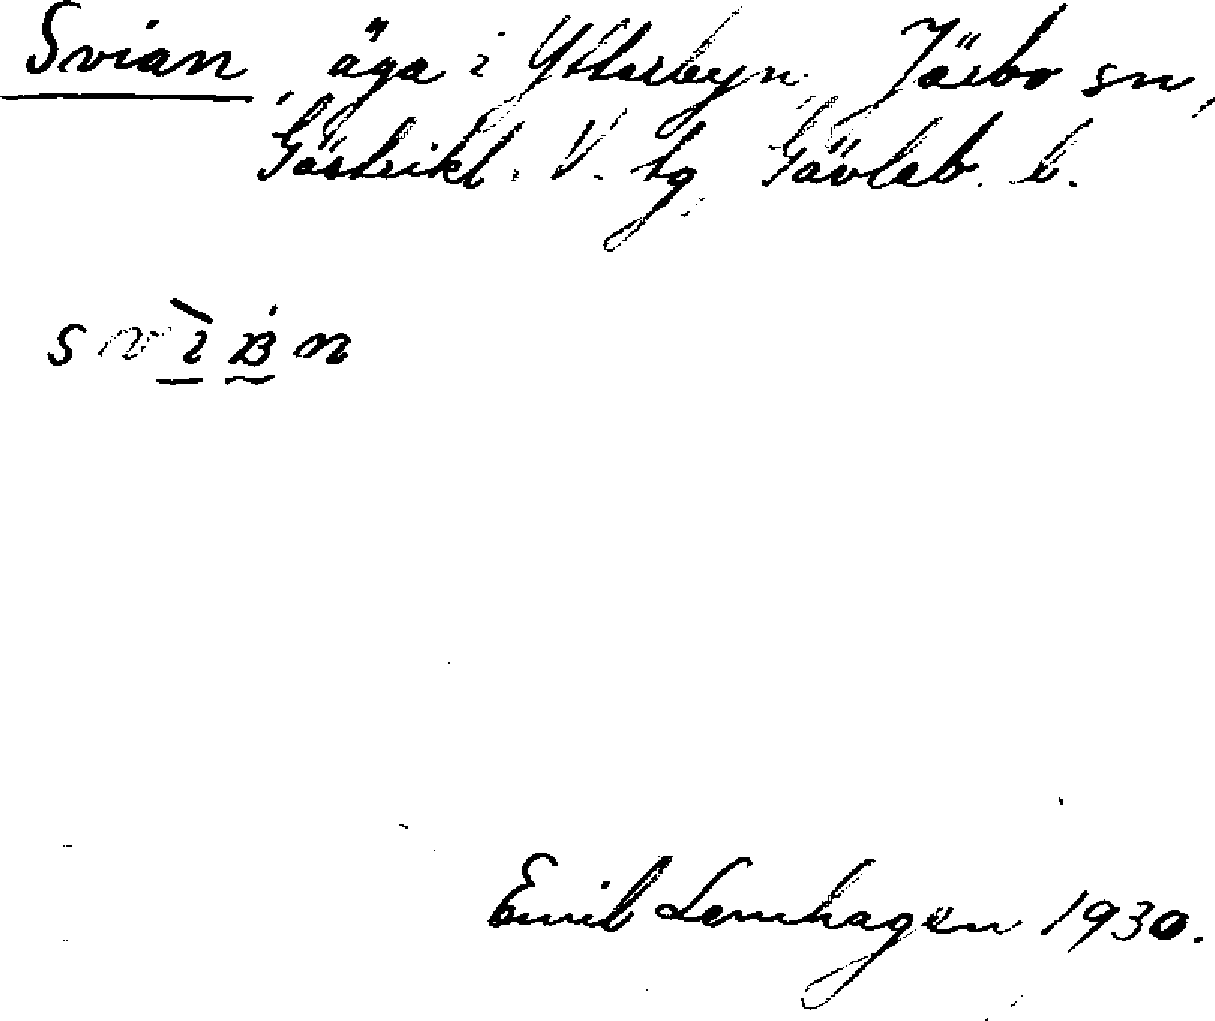 Svian, äga i Ytterbyn, Järbo sn,
Gästrikl. V. tg, Gävleb. l.
Emil Lemhagen 1930.